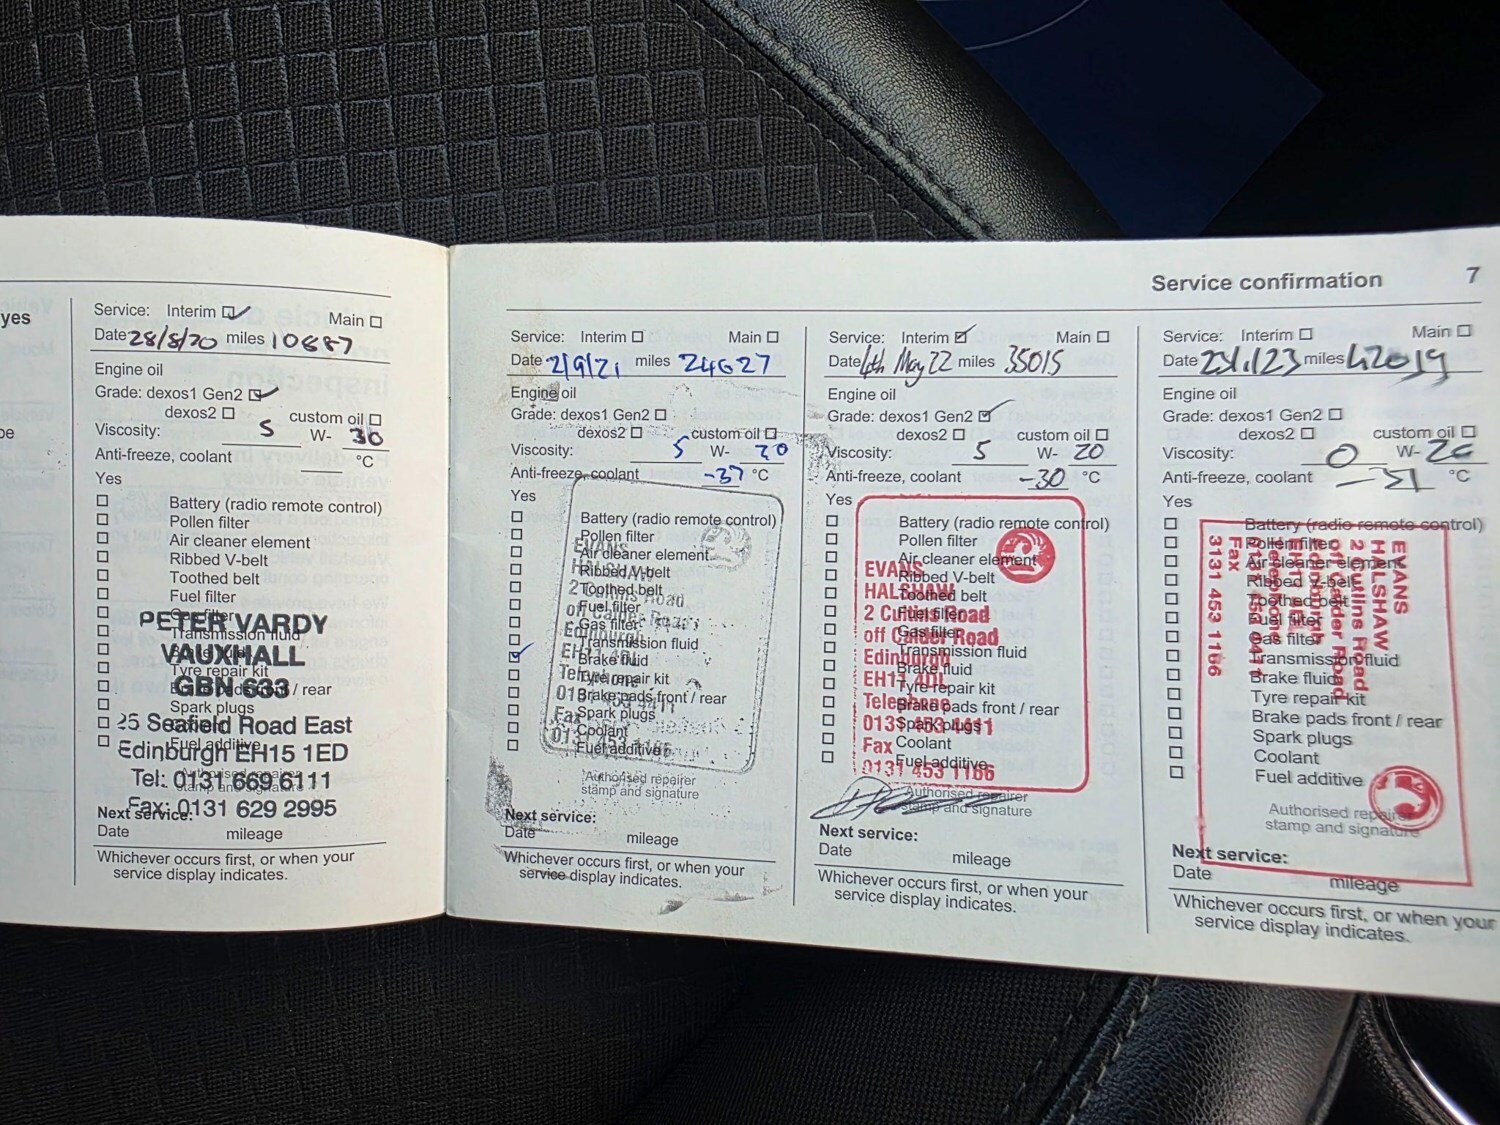 yes
Service: Interim Main
Date 28/8/20 miles 10687
Engine oil
Grade: dexos1 Gen2
dexos2 custom oil
Viscosity: 5 W- 30
Anti-freeze, coolant °C
Yes
Battery (radio remote control)
Pollen filter
Air cleaner element
Ribbed V-belt
Toothed belt
Fuel filter
Gas filter
Transmission fluid
Brake fluid
Tyre repair kit
Brake pads front / rear
Spark plugs
Fuel additive
PETER VARDY
VAUXHALL
GBN 633
25 Seafield Road East
Edinburgh EH15 1ED
Tel: 0131 669 6111
Fax: 0131 629 2995
Authorised repairer
stamp and signature
Next service:
Date mileage
Whichever occurs first, or when your
service display indicates.
Service confirmation 7
Service: Interim Main
Date 2/9/21 miles 24627
Engine oil
Grade: dexos1 Gen2
dexos2 custom oil
Viscosity: 5 W- 20
Anti-freeze, coolant -37 °C
Yes
Battery (radio remote control)
Pollen filter
Air cleaner element
Ribbed V-belt
Toothed belt
Fuel filter
Gas filter
Transmission fluid
Brake fluid
Tyre repair kit
Brake pads front / rear
Spark plugs
Coolant
Fuel additive
EVANS
HALSHAW
off Calder Road
Edinburgh
Telephone
Fax
0131 453 1166
Authorised repairer
stamp and signature
Next service:
Date mileage
Whichever occurs first, or when your
service display indicates.
Service: Interim Main
Date 4th May 22 miles 35015
Engine oil
Grade: dexos1 Gen2
dexos2 custom oil
Viscosity: 5 W- 20
Anti-freeze, coolant -30 °C
Yes
Battery (radio remote control)
Pollen filter
Air cleaner element
Ribbed V-belt
Toothed belt
Fuel filter
Gas filter
Transmission fluid
Brake fluid
Tyre repair kit
Brake pads front / rear
Spark plugs
Coolant
Fuel additive
EVANS
HALSHAW
2 Cultins Road
off Calder Road
Edinburgh
EH11 4DL
Telephone
0131 453 4411
Fax
0131 453 1166
Authorised repairer
stamp and signature
Next service:
Date mileage
Whichever occurs first, or when your
service display indicates.
Service: Interim Main
Date miles 42019
Engine oil
Grade: dexos1 Gen2
dexos2 custom oil
Viscosity: 0 W-
Anti-freeze, coolant °C
Yes
Battery (radio remote control)
Pollen filter
Air cleaner element
Ribbed V-belt
Toothed belt
Fuel filter
Gas filter
Transmission fluid
Brake fluid
Tyre repair kit
Brake pads front / rear
Spark plugs
Coolant
Fuel additive
EVANS
HALSHAW
2 Cutlins Road
off Calder Road
Fax
3131 453 1166
Authorised repairer
stamp and signature
Next service:
Date mileage
Whichever occurs first, or when your
service display indicates.